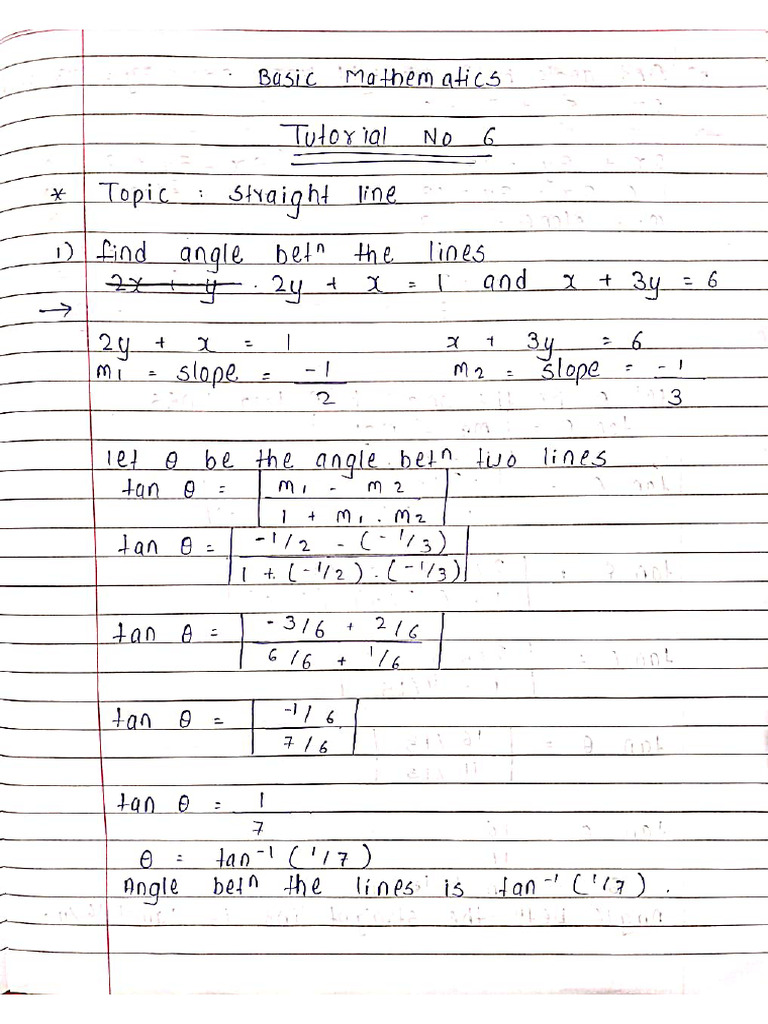 Basic Mathematics
Tutorial No 6
* Topic : straight line
1) find angle betn the lines
2x + y . 2y + x = 1 and x + 3y = 6
→
2y + x = 1 x + 3y = 6
m1 = slope = -1/2 m2 = slope = -1/3
let θ be the angle betn two lines
tan θ = | m1 - m2 / 1 + m1 . m2 |
tan θ = | -1/2 - (-1/3) / 1 + (-1/2) . (-1/3) |
tan θ = | -3/6 + 2/6 / 6/6 + 1/6 |
tan θ = | -1/6 / 7/6 |
tan θ = 1/7
θ = tan⁻¹ (1/7)
Angle betn the lines is tan⁻¹ (1/7) .